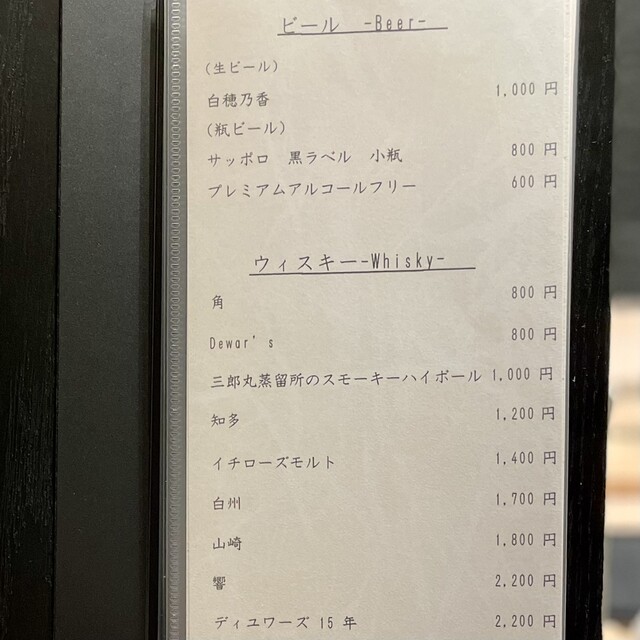 ビール -Beer-
(生ビール)
白穂乃香 1,000 円
(瓶ビール)
サッポロ 黒ラベル 小瓶 800 円
プレミアムアルコールフリー 600 円
ウィスキー-Whisky-
角 800 円
Dewar's 800 円
三郎丸蒸留所のスモーキーハイボール 1,000 円
知多 1,200 円
イチローズモルト 1,400 円
白州 1,700 円
山崎 1,800 円
響 2,200 円
ディユワーズ 15 年 2,200 円